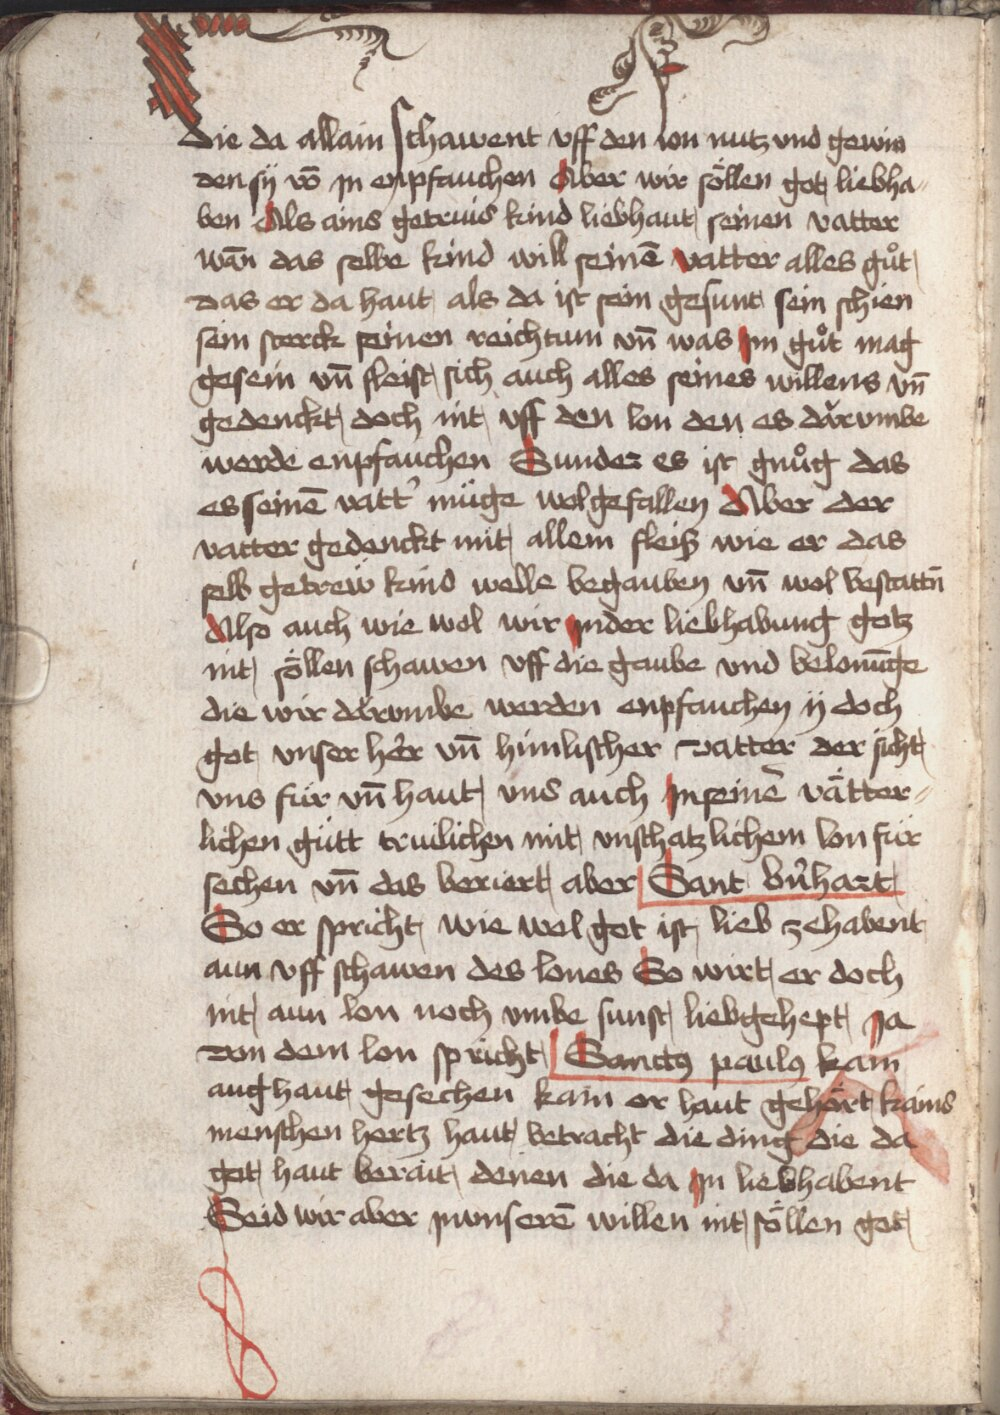 die da allain schawent uff den lon nutz und gewin
den sÿ võ jn enpfauchen Aber wir söllen got liebha⸗
ben Als ains getruis kind liebhaut seinen vatter
wañ das selbe kind will seinẽ vatter alles gůt
das er da haut als da ist sein gesunt sein schien
sein sterck seinen reichtum vñ was jm gůt mag
gesein vñ fleist sich auch alles seines willens vñ
gedenckt doch nit uff den lon den es darumbe
werde enpfauchen Sunder es ist gnůg das
es seinẽ vatt' müge wolgefallen Aber der
vatter gedenckt mit allem fleiß wie er das
selb getrew kind welle begauben vñ wol bestattñ
Also auch wie wol wir jnder liebhabung gotz
nit söllen schawen uff die gaube und belonũge
die wir darumbe werden enpfauchen ÿ doch
got vnser her vñ himlischer vatter der sicht
vns für vñ haut vns auch jnseinẽ vätter⸗
lichen gütt truilichen mit vnschatzlichem lon für
sechen vñ das beriert aber Sant b'nhart
So er spricht wie wol got ist lieb zehabent
aun uff schawen des lones So wirt er doch
nit aun lon noch umbe sunst liebgehept ja
von dem lon spricht Sanctꝰ paulꝰ kain
aug haut gesechen kain or haut gehört kains
menschen hertz haut betracht die ding die da
got haut berait denen die da jn liebhabent
Seid wir aber jnunserẽ willen nit söllen got